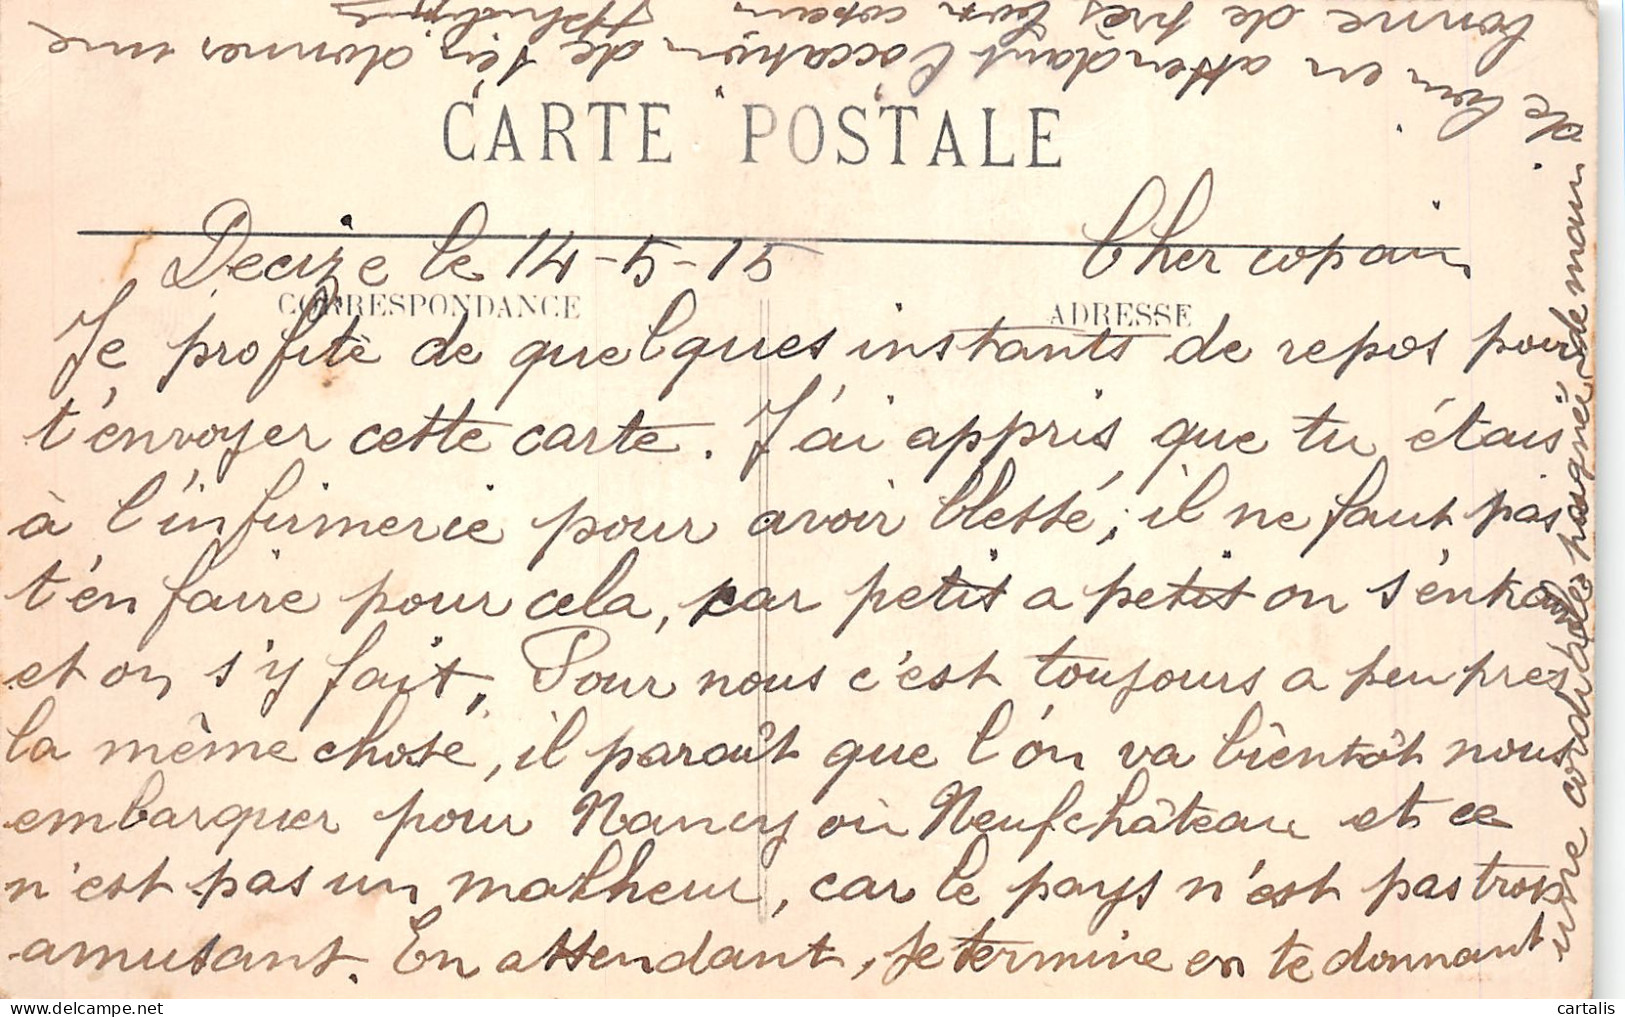 CARTE POSTALE
Decize le 14-5-15
Cher copain
CORRESPONDANCE
ADRESSE
Je profite de quelques instants de repos pour
t'envoyer cette carte. J'ai appris que tu étais
à l'infirmerie pour avoir blessé, il ne faut pas
t'en faire pour cela, car petit a petit on s'entraine
et on s'y fait, Pour nous c'est toujours a peu pres
la même chose, il paraît que l'on va bientôt nous
embarquer pour Nancy ou Neufchâteau et ce
n'est pas un malheur, car le pays n'est pas trop
amusant. En attendant, je termine en te donnant
une cordiale poignée de main
de loin en attendant l'occation de t'en donner une
bonne de près ton copain
cartalis